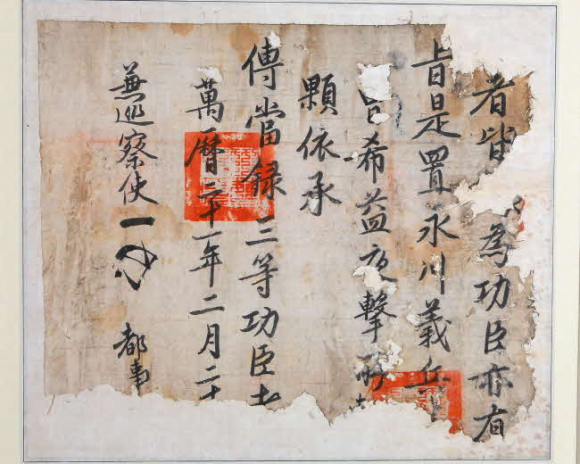 者皆 為功臣亦有
旨是置 永川義兵
希益夜擊
顆依承
傳當錄三等功臣
萬曆二十一年二月二十
兼巡察使 都事